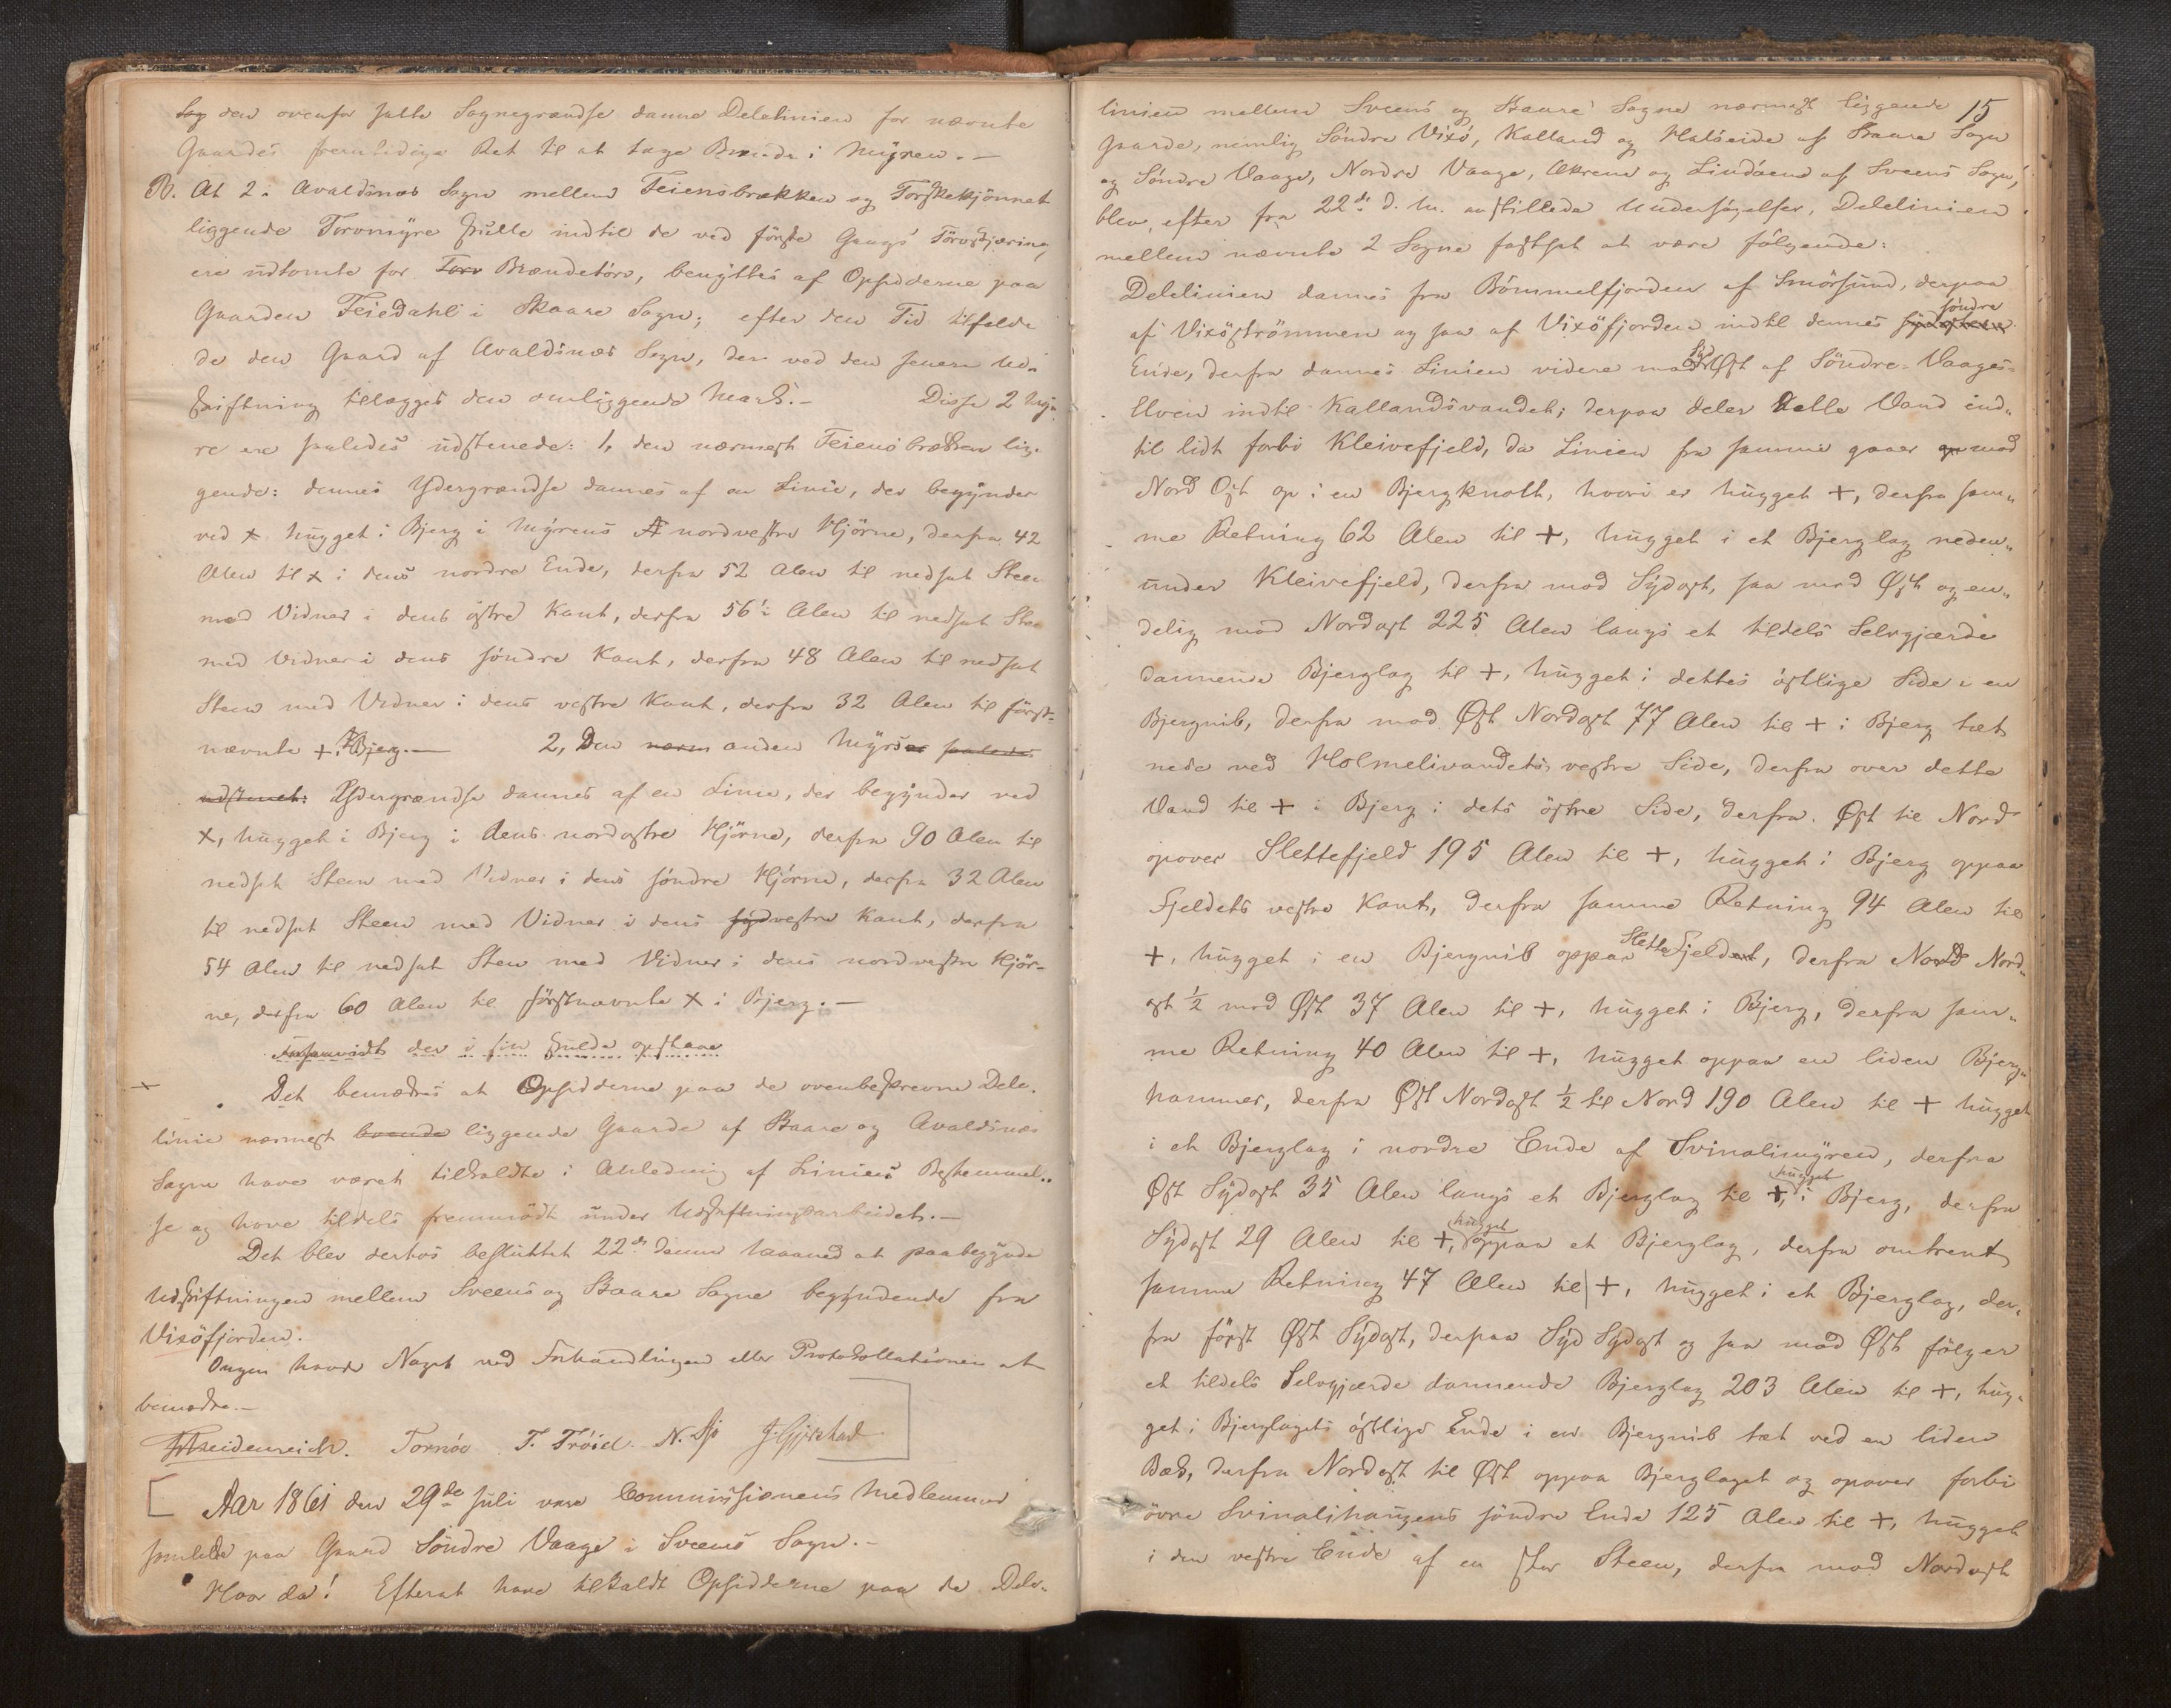 den ovenfor satte Sognegrændse danne Delelinien for nævnte
Gaardes fremtidige Ret til at tage Brænde i Myren. —
B. At 2. Avaldsnæs Sogn mellem Feiensbrækken og Torskekjönnet
liggende Torvmyre skulle indtil de ved förste Gangs Torvskjæring
ere udtomte for Torv Brændetörv, benyttes af Opsidderne paa
Gaarden Feiedahl i Skaare Sogn; efter den Tid tilfalde
de den Gaard af Avaldsnæs Sogn, der ved den senere Ud-
skiftning tillægges den omliggende Mark. — Disse 2 My-
re ere saaledes udstenede: 1, den nærmest Feiensbrækken lig-
gende: dennes Ydergrændse dannes af en Linie, der begynder
ved + hugget i Bjerg i Myrens nordvestre Hjörne, derfra 42
Alen til + i dens nordre Ende, derfra 52 Alen til nedsat Steen
med Vidner i dens östre Kant, derfra 56 Alen til nedsat Steen
med Vidner i dens söndre Kant, derfra 48 Alen til nedsat
Steen med Vidner i dens vestre Kant, derfra 32 Alen til först-
nævnte + i Bjerg. — 2, Den nærm anden Myrs saaledes
udstenet: Ydergrændse dannes af en Linie, der begynder ved
+, hugget i Bjerg i dens nordostre Hjörne, derfra 90 Alen til
nedsat Steen med Vidner i dens söndre Hjörne, derfra 32 Alen
til nedsat Steen med Vidner i dens sydvestre Kant, derfra
54 Alen til nedsat Steen med Vidner i dens nordvestre Hjör-
ne, derfra 60 Alen til förstnævnte + i Bjerg. —
der i sin
Det bemærkes at Opsidderne paa de ovenbeskrevne Dele-
linie nærmest boende liggende Gaarde af Skaare og Avaldsnæs
Sogne have været tilkaldte i Anledning af Liniens Bestemmel-
se og have tildels fremmödt under Udskiftningsarbeidet. —
Det blev derhos besluttet 22de denne Maaned at paabegynde
Udskiftningen mellem Sveens og Skaare Sogne begyndende fra
Vixöfjorden.
Ingen havde Noget ved Forhandlingen eller Protokollationen at
bemærke. —
Heidenreich. Tornöe T. Tröied. N.
Aar 1861 den 29de Juli vare Commissionens Medlemmer
samlede paa Gaard Söndre Vaage i Sveens Sogn. —
Hvor da! Efterat have tilkaldt Opsidderne paa de Dele-
15
linien mellem Sveens og Skaare Sogne nærmest liggende
Gaarde, nemlig Söndre Vixö, Kalland og Halseide af Skaare Sogn
og Söndre Vaage, Nordre Vaage, Økrene og Lindöen af Sveens Sogn,
blev, efter fra 22de d. M. anstillede Undersögelser, Delelinien
mellem nævnte 2 Sogne fastsat at være fölgende:
Delelinien dannes fra Bömmelfjorden af Smörsund, derpaa
af Vixöströmmen og saa af Vixöfjorden indtil dennes söndre
Ende, derfra dannes Linien videre mod Syd Øst af Söndre-Vaages-
Elven indtil Kallandsvandet; derpaa deler dette Vand ind-
til lidt forbi Kleivefjeld, da Linien fra samme gaaer op mod
Nord Ost op i en Bjergknatt, hvori er hugget +, derfra sam-
me Retning 62 Alen til +, hugget i et Bjerglag neden-
under Kleivefjeld, derfra mod Sydost, saa mod Øst og en-
delig mod Nordost 225 Alen langs et tildels Selvgjærde
dannende Bjerglag til +, hugget i dettes östlige Side i en
Bjergnib, derfra mod Øst Nordost 77 Alen til + i Bjerg tæt
nede ved Holmelivandets vestre Side, derfra over dette
Vand til + i Bjerg i dets östre Side, derfra Øst til Nord
opover Slettefjeld 195 Alen til +, hugget i Bjerg oppaa
Fjeldets vestre Kant, derfra samme Retning 94 Alen til
+, hugget i en Bjergnib oppaa Slettefjeldet, derfra Nord Nord-
ost ½ mod Øst 37 Alen til +, hugget i Bjerg, derfra sam-
me Retning 40 Alen til +, hugget oppaa en liden Bjerg-
hammer, derfra Øst Nordost ½ til Nord 190 Alen til + hugget
i et Bjerglag i nordre Ende af Svinalimyren, derfra
Øst Sydost 35 Alen langs et Bjerglag til +, hugget i Bjerg, derfra
Sydost 29 Alen til +, hugget oppaa et Bjerglag, derfra omtrent
samme Retning 47 Alen til +, hugget i et Bjerglag, der-
fra först Øst Sydost, derpaa Syd Sydost og saa mod Øst fölger
et tildels Selvgjærde dannende Bjerglag 203 Alen til +, hug-
get i Bjerglagets östlige Ende i en Bjergnib tæt ved en liden
Bæk, derfra Nordost til Øst oppaa Bjerglaget og opover forbi
övre Svinalihaugens söndre Ende 125 Alen til +, hugget
i den vestre Ende af en stor Steen, derfra mod Nordost